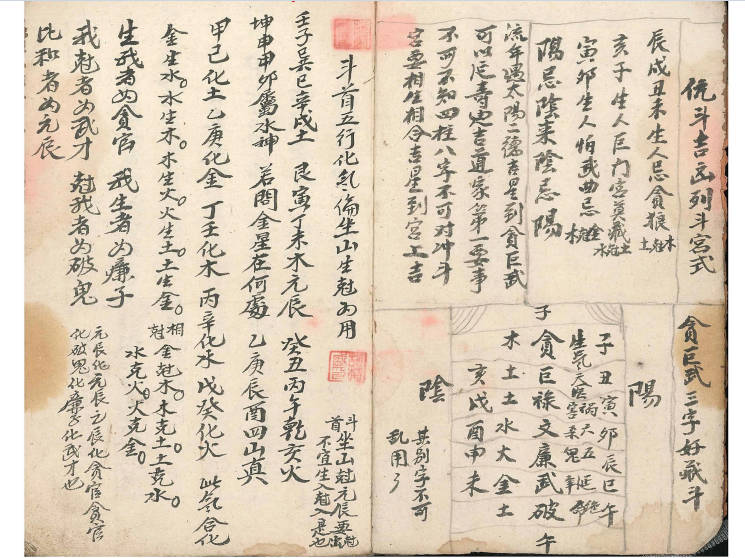 斗吉凶列斗宮式
辰戌丑未生人忌貪狼木尅土
亥子生人巨门宫莫藏土尅水
寅卯生人怕武曲忌金尅木
陽忌陰来陰忌陽
流年遇太陽二德吉星到貪巨武
可以延壽也吉道家第一要事
不可不知四柱八字不可对冲斗
宫要相生相合吉星到宫上吉
貪巨武三字好藏斗
陽
子丑寅卯辰巳午
子貪巨祿文廉武破午
木土土水火金土
亥戌酉申未
陰
其别字不可
乱用了
斗首五行化氣倫坐山生尅为用
斗首坐山尅元辰要
不宜生入尅入是也
壬子巽巳辛戌土 艮寅丁未木元辰 癸丑丙午乾亥火
坤申甲卯屬水神 若問金星在何處 乙庚辰酉四山真
甲己化土乙庚化金 丁壬化木 丙辛化水戊癸化火 此氣合化
金生水。水生木。木生火。火生土。土生金。相尅 金尅木。木克土。土克水。
水克火。火克金。
生我者为貪官 我生者为廉子
我尅者为武才 尅我者为破鬼
比和者为元辰
元辰化元辰元辰化貪官貪官
化破鬼化廉子化武才也